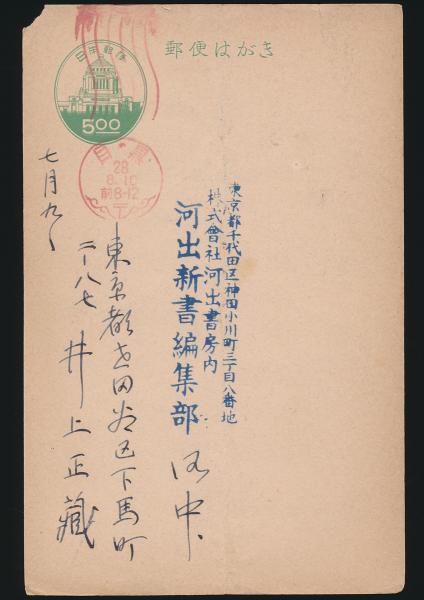 郵便はがき
日本郵便
5.00
目黒
28
8.10
前8-12
東京都千代田区神田小川町三丁目八番地
株式會社河出書房内
河出新書編集部 御中
東京都世田谷区下馬町
井上正藏
七月九